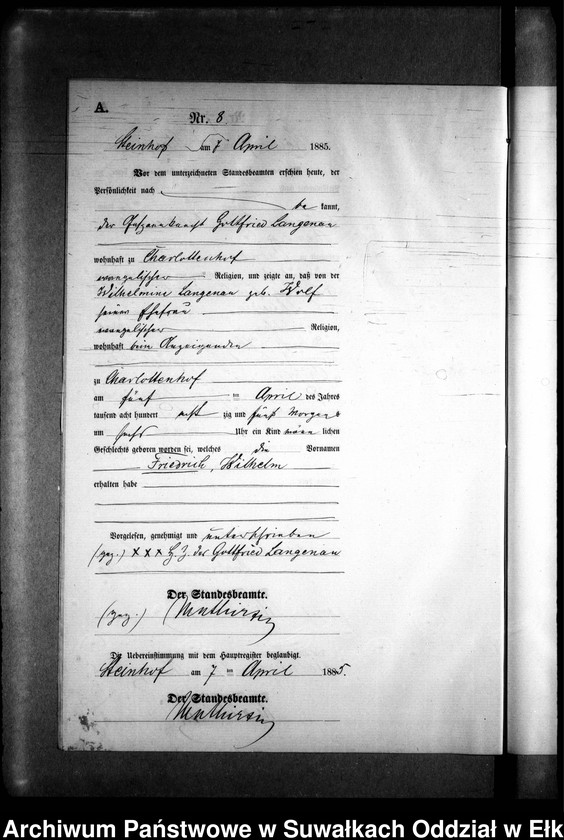 A.
Nr. 8
Steinhof am 7 April 1885.
Vor dem unterzeichneten Standesbeamten erschien heute, der
Persönlichkeit nach
be kannt,
der Gottfried Langenau
wohnhaft zu Charlottenhof
evangelischer Religion, und zeigte an, daß von der
Wilhelmine Langenau geb. Wolf
seiner Ehefrau
evangelischer Religion,
wohnhaft beim Anzeigenden
zu Charlottenhof
am fünf ten April des Jahres
tausend acht hundert acht zig und fünf Morgens
um sechs Uhr ein Kind männ lichen
Geschlechts geboren worden sei, welches die Vornamen
Friedrich, Wilhelm
erhalten habe
Vorgelesen, genehmigt und unterschrieben
(gez.) x x x H. Z. des Gottfried Langenau
Der Standesbeamte.
(gez.)
Die Uebereinstimmung mit dem Hauptregister beglaubigt.
Steinhof am 7 ten April 1885.
Der Standesbeamte.
Archiwum Państwowe w Suwałkach Oddział w Ełk